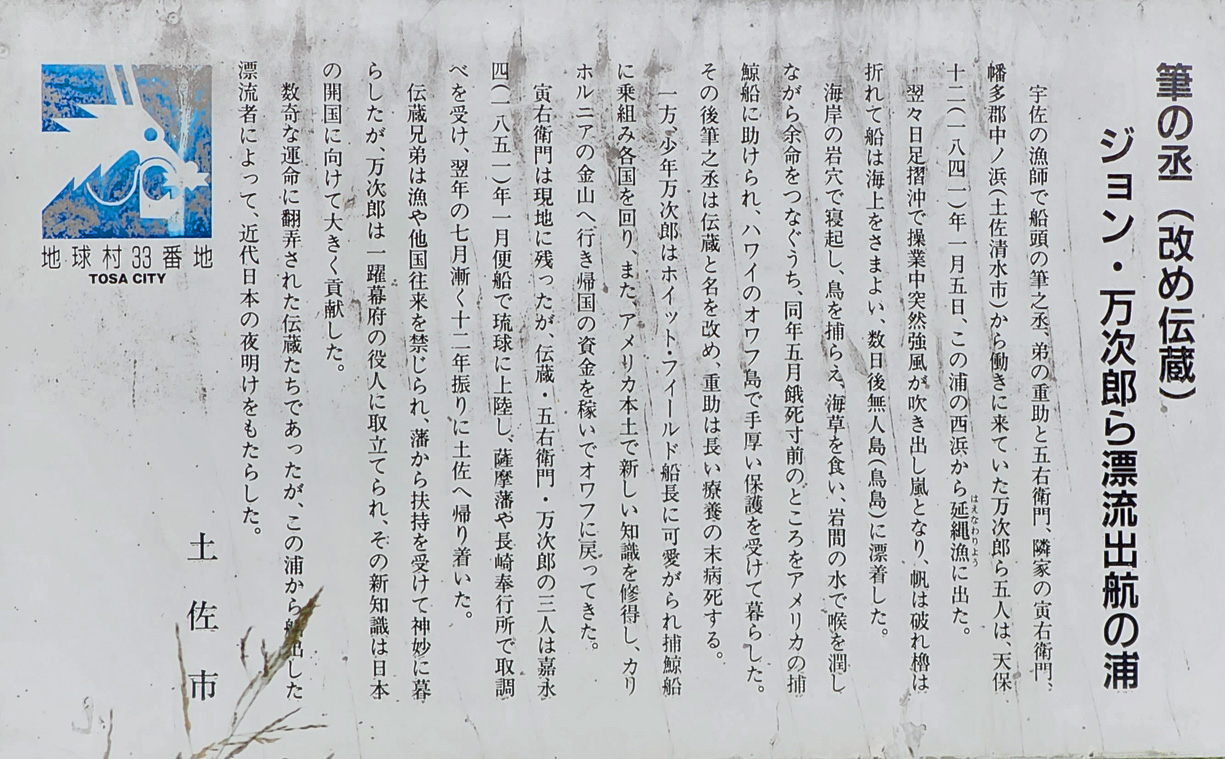 筆の丞（改め伝蔵）
ジョン・万次郎ら漂流出航の浦
宇佐の漁師で船頭の筆之丞、弟の重助と五右衛門、隣家の寅右衛門、
幡多郡中ノ浜(土佐清水市)から働きに来ていた万次郎ら五人は、天保
十二(一八四一)年一月五日、この浦の西浜から延縄漁に出た。
はえなわりよう
翌々日足摺沖で操業中突然強風が吹き出し嵐となり、帆は破れ櫓は
折れて船は海上をさまよい、数日後無人島(鳥島)に漂着した。
海岸の岩穴で寝起し、鳥を捕らえ、海草を食い、岩間の水で喉を潤し
ながら余命をつなぐうち、同年五月餓死寸前のところをアメリカの捕
鯨船に助けられ、ハワイのオワフ島で手厚い保護を受けて暮らした。
その後筆之丞は伝蔵と名を改め、重助は長い療養の末病死する。
一方、少年万次郎はホイット・フィールド船長に可愛がられ捕鯨船
に乗組み各国を回り、また、アメリカ本土で新しい知識を修得し、カリ
ホルニアの金山へ行き帰国の資金を稼いでオワフに戻ってきた。
寅右衛門は現地に残ったが、伝蔵・五右衛門・万次郎の三人は嘉永
四(一八五一)年一月便船で琉球に上陸し、薩摩藩や長崎奉行所で取調
べを受け、翌年の七月漸く十二年振りに土佐へ帰り着いた。
伝蔵兄弟は漁や他国往来を禁じられ、藩から扶持を受けて神妙に暮
らしたが、万次郎は一躍幕府の役人に取立てられ、その新知識は日本
の開国に向けて大きく貢献した。
数奇な運命に翻弄された伝蔵たちであったが、この浦から出した
漂流者によって、近代日本の夜明けをもたらした。
土佐市
地球村33番地
TOSA CITY